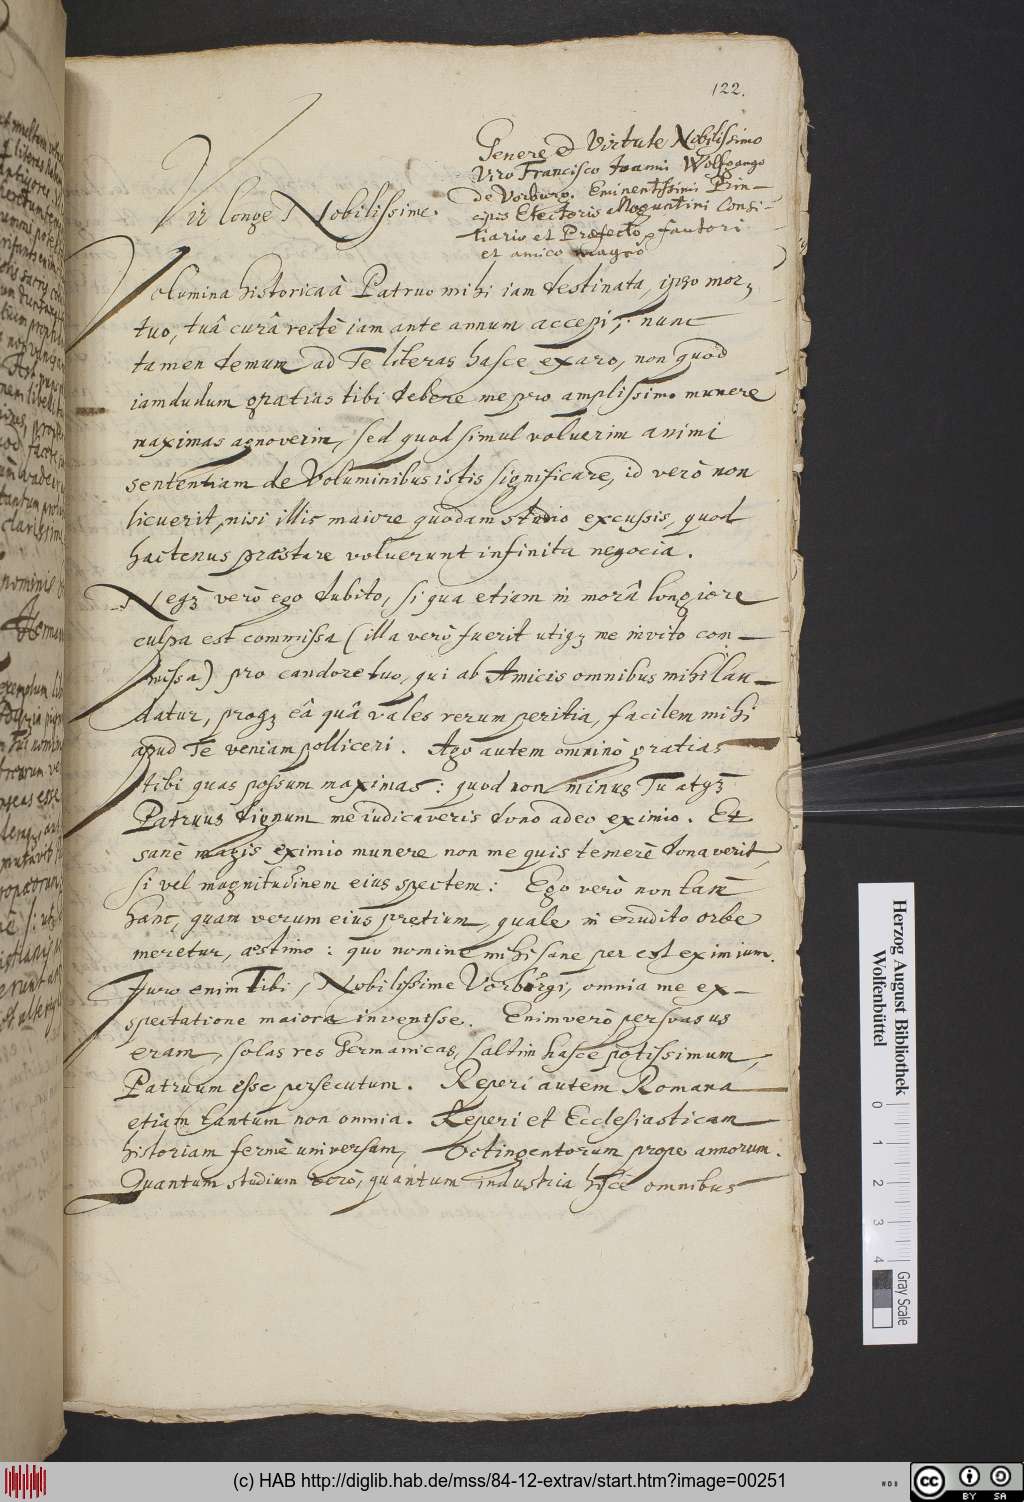 122.
Genere et Virtute Nobilissimo
Viro Francisco Joanni Wolfgango
de Vorburg. Eminentissimi Prin-
cipis Electoris Moguntini Consi-
liario et Præfecto, fautori
et amico magno
Vir longe Nobilissime.
Volumina historica à Patruo mihi iam destinata, ipso mor,
tuo, tuâ curâ rectè iam ante annum accepi; nunc
tamen demum ad Te literas hasce exaro, non quod
iamdudum gratias tibi debere me pro amplissimo munere
maximas agnoverim, sed quod simul voluerim animi
sententiam de Voluminibus istis significare, id verò non
licuerit, nisi illis maiore quodam studio excussis, quod
hactenus præstare voluerunt infinita negocia.
Neqꝫ verò ego dubito, si qua etiam in morâ longiore
culpa est commissa (illa verò fuerit utiqꝫ me invito com-
missa) pro candore tuo, qui ab Amicis omnibus mihi lau-
datur, proqꝫ eâ quâ vales rerum peritia, facilem mihi
apud Te veniam polliceri. Ago autem omninò gratias
tibi quas possum maximas: quod non minus Tu atqꝫ
Patruus dignum me iudicaveris dono adeo eximio. Et
sanè magis eximio munere non me quis temerè donaverit,
si vel magnitudinem eius spectem: Ego verò non tam
hanc, quam verum eius pretium, quale in erudito orbe
meretur, æstimo: quo nomine mihi sane per est eximium.
Juro enim Tibi, Nobilissime Vorburgi, omnia me ex-
spectatione maiora invenisse. Enimverò persvasus
eram, solas res Germanicas, saltim hasce potissimum,
Patruum esse persecutum. Reperi autem Romana
etiam tantum non omnia. Reperi et Ecclesiasticam
historiam fermè universam, Octingentorum prope annorum.
Quantum studium verò, quantum industria hisce omnibus
Herzog August Bibliothek
Wolfenbüttel
0 1 2 3 4
Gray Scale
(c) HAB http://diglib.hab.de/mss/84-12-extrav/start.htm?image=00251
cc BY SA